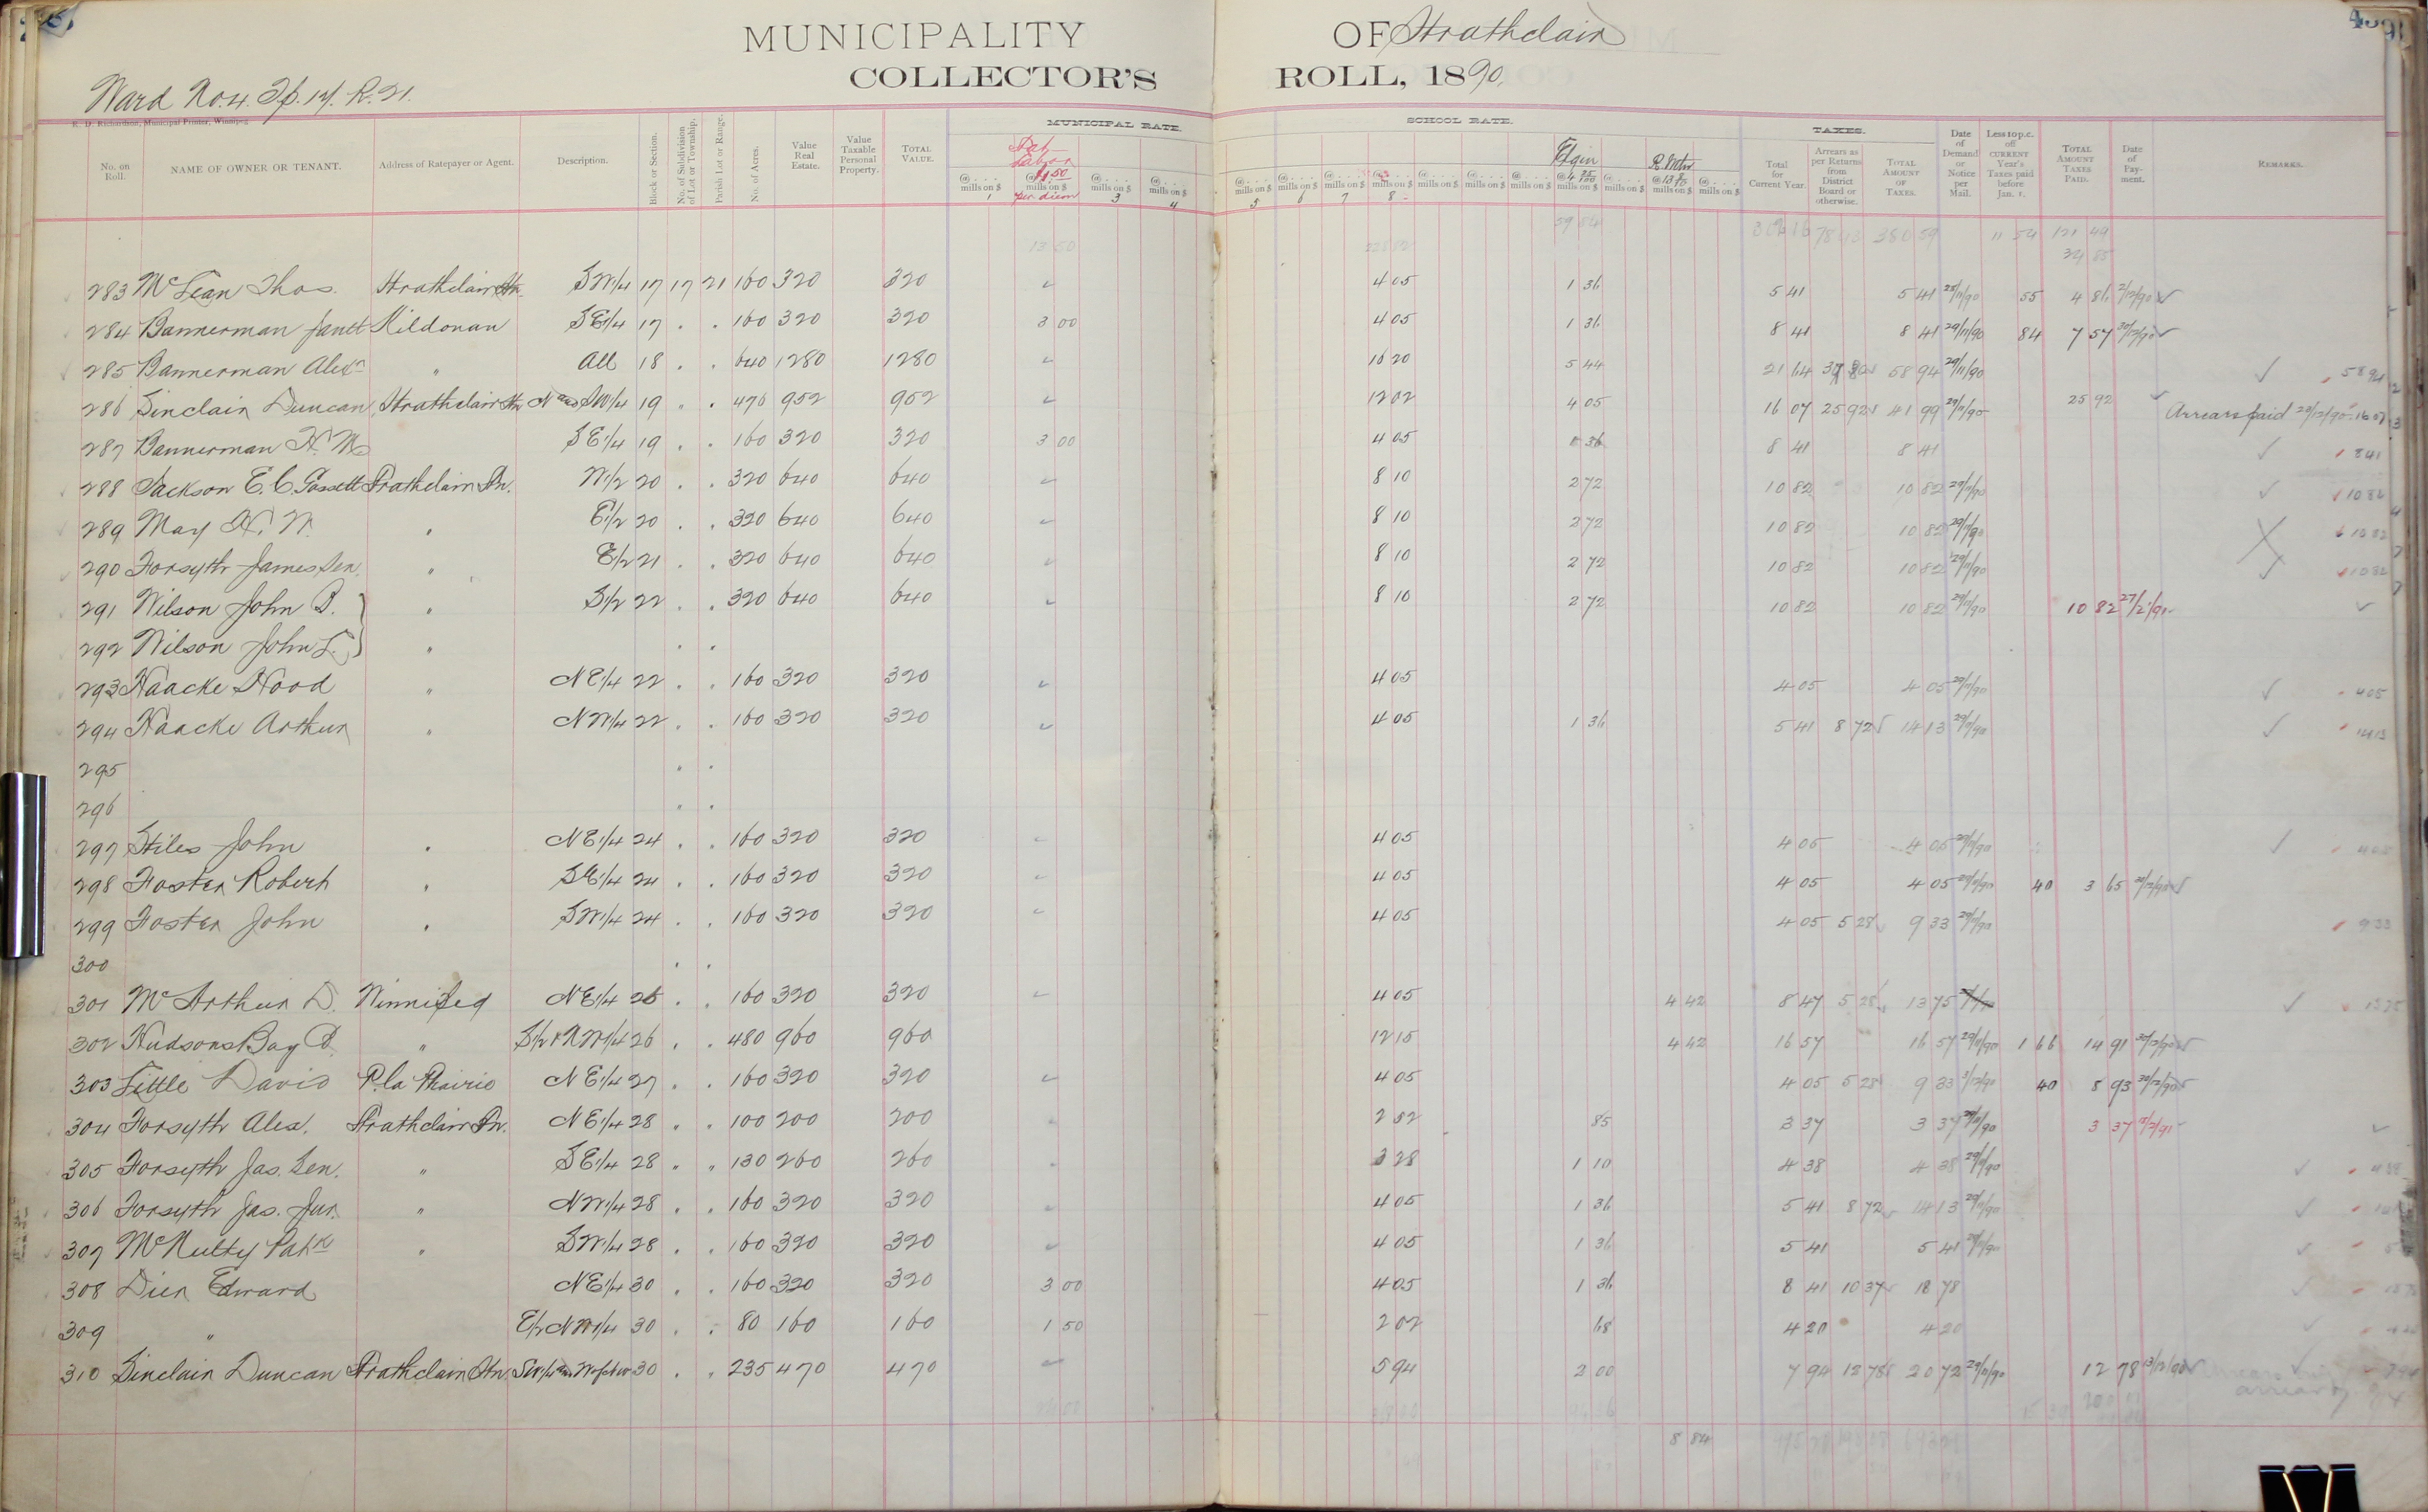 MUNICIPALITY OF Strathclair
COLLECTOR'S ROLL, 1890.
Ward No. 4. Tp. 17. R. 21.
R. D. Richardson, Municipal Printer, Winnipeg
MUNICIPAL RATE. SCHOOL RATE. TAXES.
No. on Roll. NAME OF OWNER OR TENANT. Address of Ratepayer or Agent. Description. Block or Section. No. of Subdivision of Lot or Township. Parish Lot or Range. No. of Acres. Value Real Estate. Value Taxable Personal Property. TOTAL VALUE. @ .... mills on $ 1 Labor 1.50 per diem 3 4 5 6 7 8 Elgin Total for Current Year. Arrears as per Returns from District Board or otherwise. TOTAL AMOUNT OF TAXES. Date of Demand or Notice per Mail. Less 10 p.c. off CURRENT Year's Taxes paid before Jan. 1. TOTAL AMOUNT TAXES PAID. Date of Payment. REMARKS.
13 50 59 84 380 59 11 54 121 49
283 McLean Thos. Strathclair Stn. SW1/4 17 17 21 160 320 320 4 05 1 36 5 41 5 41 55 4 86 2/12/90
284 Bannerman Janet Kildonan SE1/4 17 . . 160 320 320 3 00 4 05 1 36 8 41 8 41 29/11/90 84 7 57 30/12/90
285 Bannerman Alexr " All 18 . . 640 1280 1280 16 20 5 44 21 64 58 94 29/11/90 58 94
286 Sinclair Duncan Strathclair Stn N and SW1/4 19 " . 476 952 952 12 02 4 05 16 07 25 92 41 99 29/11/90 25 92 Arrears paid 20/12/90 16 07
287 Bannerman H. M. SE1/4 19 . . 160 320 320 3 00 4 05 1 36 8 41 8 41 8 41
288 Jackson E. C. Gossett Strathclair Stn. W1/2 20 . . 320 640 640 8 10 2 72 10 82 10 82 29/11/90 10 82
289 May H. W. " E1/2 20 . . 320 640 640 8 10 2 72 10 82 10 82 29/11/90 10 82
290 Forsyth James Sen. " E1/2 21 . . 320 640 640 8 10 2 72 10 82 10 82 29/11/90 10 82
291 Wilson John B. " S1/2 22 . . 320 640 640 8 10 2 72 10 82 10 82 29/11/90 10 82 27/2/91
292 Wilson John L. " . .
293 Haacke Hood " NE1/4 22 . . 160 320 320 4 05 4 05 4 05 29/11/90 4 05
294 Haacke Arthur " NW1/4 22 . . 160 320 320 4 05 1 36 5 41 8 72 14 13 29/11/90 14 13
295 . .
296 . .
297 Stiles John " NE1/4 24 . . 160 320 320 4 05 4 05 4 05 29/11/90 4 05
298 Foster Robert " SE1/4 24 . . 160 320 320 4 05 4 05 4 05 29/11/90 40 3 65
299 Foster John " SW1/4 24 . . 160 320 320 4 05 4 05 5 28 9 33 29/11/90 9 33
300 . .
301 McArthur D. Winnipeg NE1/4 . . 160 320 320 4 05 4 42 8 47 5 28 13 75 13 75
302 Hudsons Bay Co. " S1/2 & NW1/4 26 . . 480 960 960 12 15 4 42 16 57 16 57 29/11/90 1 66 14 91
303 Little David P. la Prairie NE1/4 27 . . 160 320 320 4 05 4 05 5 28 9 33 40 8 93
304 Forsyth Alex. Strathclair Stn. NE1/4 28 " . 100 200 200 2 52 85 3 37 3 37 29/11/90 3 37
305 Forsyth Jas. Sen. " SE1/4 28 " " 130 260 260 3 28 1 10 4 38 4 38 29/11/90 4 38
306 Forsyth Jas. Jur. " NW1/4 28 . . 160 320 320 4 05 1 36 5 41 8 72 14 13 29/11/90
307 McNulty Patk " SW1/4 28 . . 160 320 320 4 05 1 36 5 41 5 41 29/11/90
308 Dier Edward NE1/4 30 . . 160 320 320 3 00 4 05 1 36 8 41 10 37 18 78
309 " E1/2 NW1/4 30 . . 80 160 160 1 50 2 02 68 4 20 4 20
310 Sinclair Duncan Strathclair Stn. SW1/4 30 . . 235 470 470 5 94 2 00 7 94 12 78 20 72 29/11/90 12 78
8 84